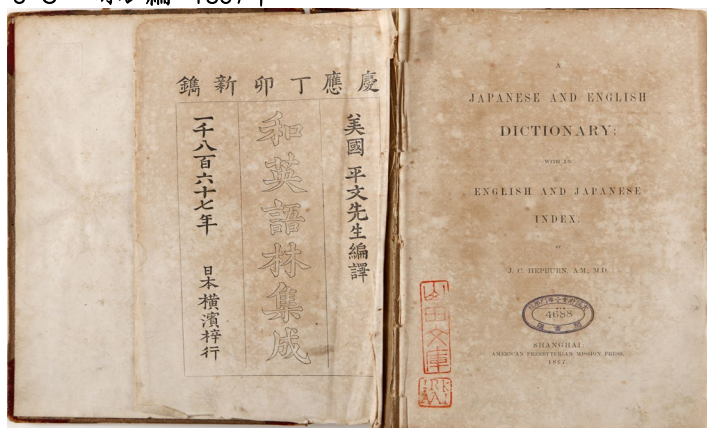 慶應丁卯新鐫
美國 平文先生編譯
和英語林集成
一千八百六十七年 日本橫濱梓行
A
JAPANESE AND ENGLISH
DICTIONARY;
WITH AN
ENGLISH AND JAPANESE
INDEX.
BY
J. C. HEPBURN, A.M., M.D.
4688
山田文庫
SHANGHAI:
AMERICAN PRESBYTERIAN MISSION PRESS.
1867.